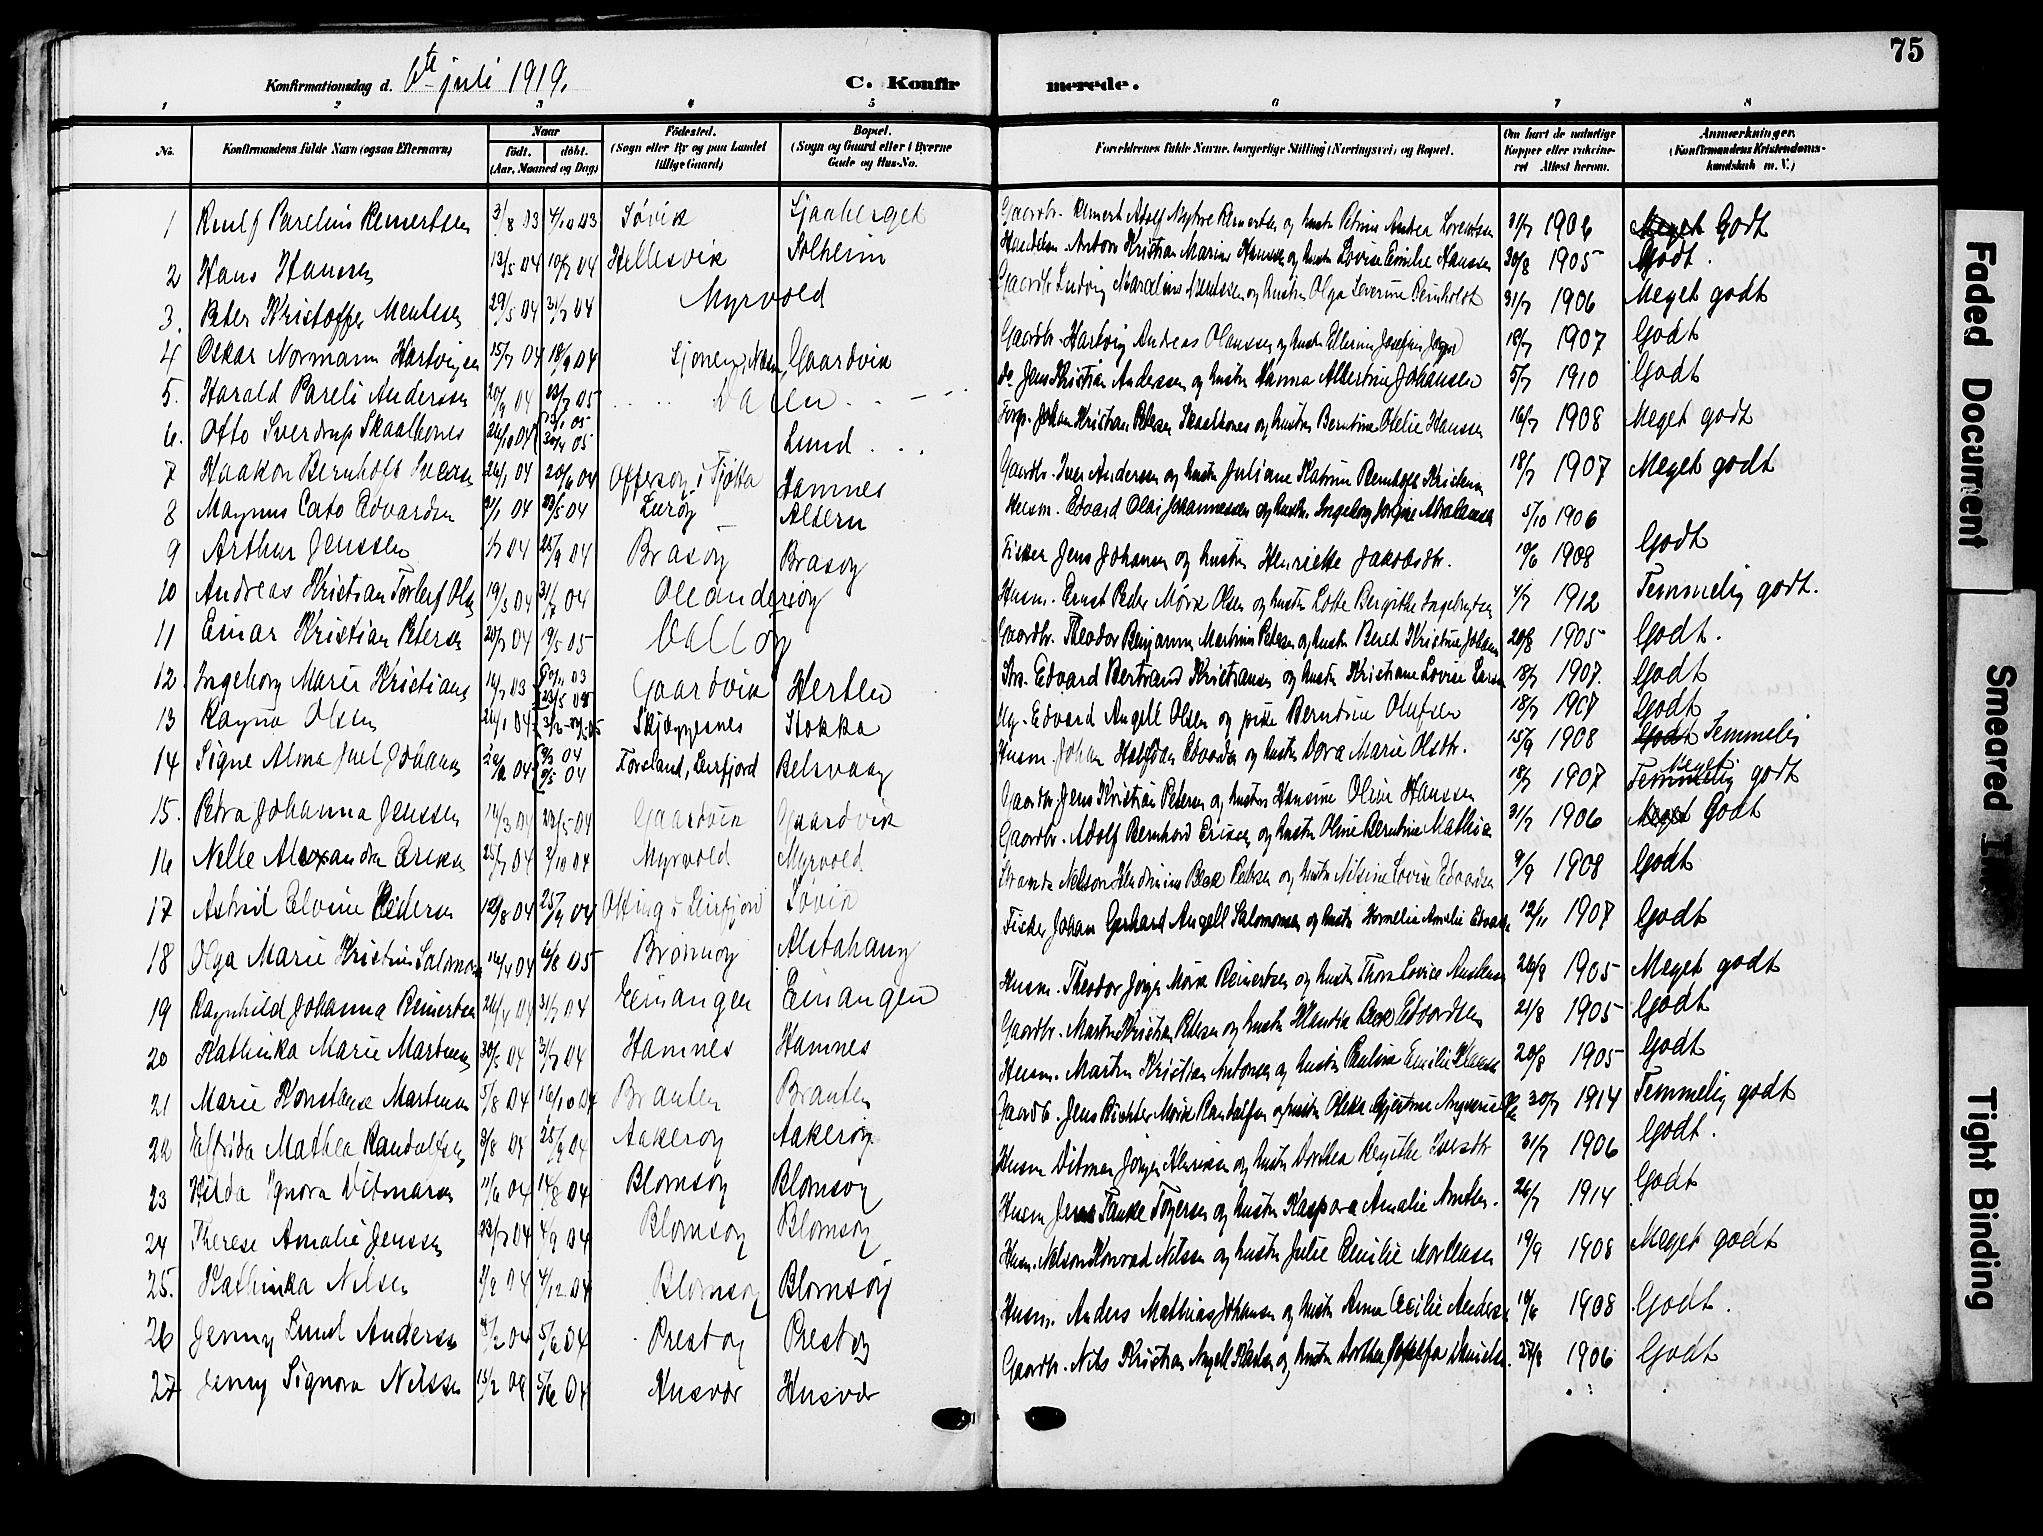 75
Konfirmationsdag d. 6te juli 1919. C. Konfirmerede.
1 2 3 4 5 6 7 8
No. Konfirmandens fulde Navn (ogsaa Efternavn) Naar født. døbt. (Aar, Maaned og Dag) Fødested. (Sogn eller By og paa Landet tillige Gaard) Bopæl. (Sogn og Gaard eller i Byerne Gade og Hus-No.) Forældrenes fulde Navne, borgerlige Stilling (Næringsvei) og Bopæl. Om havt de naturlige Kopper eller vakcineret Attest herom. Anmærkninger. (Konfirmandens Kristendomskundskab m. V.)
1 Parelius Reinertsen 3/8 03 4/10 03 Søvik Sjaaberget Gaardbr. Reinert Adolf Reinertsen og hustru Petrine Andrea Lorentsen 31/7 1906 Meget Godt
2 Hans Hansen 13/5 04 10/7 04 Hellesvik Solheim Anton Kristian Marius Hanssen og hustru Lovise Emilie Hanssen 30/8 1905 Godt.
3. Peter Kristoffer Mentsen 29/5 04 31/7 04 Myrvold Gaardbr. Ludvig Marcelius Mentsen og hustru Olga Severine Reinholdt 31/7 1906 Meget godt
4 Oskar Normann Hartvigsen 15/7 04 18/9 04 Sjonen, Gaardvik Gaardbr. Hartvig Andreas Olaussen og hustru 18/7 1907 Godt
5. Harald Pareli Andersen 20/9 04 23/7 05 Dalen do Jens Kristian Anderssen og hustru Hanna Albertine Johansen 5/7 1910 Godt
6. Otto Sverdrup Skaalbones 26/10 04 05 30/4 05 Lund Johan Kristian Petersen Skaalbones og hustru Berntine Otelie Hanssen 16/7 1908 Meget godt
7 Haakon Bernhoft Iversen 26/1 04 20/6 04 Offersøy i Tjøtta Hamnes Gaardbr. Iver Andersen og hustru Juliane Katrine Bernhoft Kristensen 18/7 1907 Meget godt
8 Magnus Cato Edvardsen 31/1 04 23/5 04 Lurøy Altern Husm. Edvard Olai Johannessen og hustru Ingeborg Jørgine 5/10 1906
9 Arthur Jenssen 1/7 04 25/9 04 Brasøy Brasøy Fisker Jens Johansen og hustru Henriette Jakobsdtr. 10/6 1908 Godt
10 Andreas Kristian Torleif Olsen 19/5 04 31/7 04 Oleandersøy Husm. Ernst Peder Mørk Olsen og hustru Lotte Bergithe Ingebrigtsen 4/7 1912 Temmelig godt.
11 Einar Kristian Petersen 20/7 04 19/5 05 Valløy Gaardbr. Theodor Benjamin Martinus Petersen og hustru Beret Kristine Johansen 20/8 1905 Godt.
12. Ingeborg Marie Kristians 14/7 03 03 23/5 05 Gaardvik Hertlen Str. Edvard Bertrand Kristiansen og hustru Kristiane Lovise Larsen 18/7 1907. Godt
13 Ragna Olsen 26/1 04 Skjeggesnes Stokka Edvard Angell Olsen og pike Berntine Olufsen 18/7 1907 Godt
14 Signe Alma Juel Johansen 04 04 04 Forsland, Leirfjord Belsvaag Husm. Johan Halfdan Edvardsen og hustru Dora Marie Olsdtr. 15/9 1908 Godt Temmelig
15. Petra Johanna Jenssen 14/3 04 23/5 04 Gaardvik Gaardvik Gaardbr. Jens Kristian Petersen og hustru Hansine Oline Hanssen 18/7 1907 Temmelig Meget godt
16 Nelle Alexandra Eriksen 25/7 04 2/10 04 Myrvold Myrvold Gaardbr. Adolf Bernhard Eriksen og hustru Oline Berntine Mathisen 31/7 1906 Meget Godt
17 Astrid Elvine Pedersen 12/8 04 25/9 04 Leirfjord Søvik Nelson Hendrik Beck Pedersen og hustru Nilsine Lovise Edvardsen 9/9 1908 Godt
18 Olga Marie Kristine Salomonsen 16/4 04 6/8 05 Brønnøy Alstahaug Fisker Johan Gerhard Angell Salomonsen og hustru Kornelia Amalie 12/11 1907 Godt
19 Ragnhild Johanna Reinertsen 26/4 04 31/7 04 Einangen Einangen Husm. Theodor Jørgen Mørk Reinertsen og hustru Thora Lovise 26/8 1905 Meget godt
20 Kathinka Marie Martinsen 30/5 04 31/7 04 Hamnes Hamnes Gaardbr. Martin Kristian Petersen og hustru Klaudia Edvardsen 21/8 1905 Godt
21 Marie Konstanse Martinsen 5/8 04 16/10 04 Branten Branten Husm. Martin Kristian Antonsen og hustru Pauline Emilie 20/8 1905 Godt
22 Valfrida Mathea Randolfsen 3/8 04 25/9 04 Aakerøy Aakerøy Gaardb. Jens Richter Mørk Randolfsen og hustru 30/7 1914 Temmelig godt
23 Hilda Ignora Ditmarsen 11/6 04 14/8 04 Blomsøy Blomsøy Husm Ditman Jørgen Henriksen og hustru Dorthea Bergithe 31/7 1906 Godt.
24 Therese Amalie Jenssen 23/7 04 4/9 04 Blomsøy Blomsøy Husm Jens Tanke Torgersen og hustru Kaspara Amalie Arntsen. 26/7 1914 Godt
25. Kathinka Nilsen 04 4/12 04 Blomsøy Blomsøy Husm. Nelson Konrad Nilssen og hustru Julie Emilie Mortensen 19/9 1908 Meget godt
26 Jenny Lund Andersen 04 5/6 04 Prestøy Prestøy Husm. Anders Mathias Johansen og hustru Anna Cecilie Andersen 19/6 1908 Godt.
27 Jenny Signora Nilssen 15/2 04 5/6 04 Husvær Husvær Gaardbr. Nils Kristian Angell Karlsen og hustru Dorthea Josefa Danielsen. 27/8 1906 Godt
Faded Document
Smeared Ink
Tight Binding